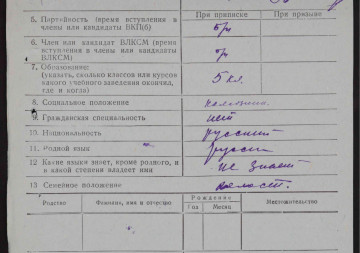 При приписке При призыве
5. Партейность (время вступления в члены или кандидаты ВКП(б) б/п
6. Член или кандидат ВЛКСМ (время вступления в члены или кандидаты ВЛКСМ)
7. Образование:
(указать, сколько классов или курсов какого учебного заведения окончил, где и когда) 5 кл.
8. Социальное положение
9. Гражданская специальность нет
10. Национальность русский
11. Родной язык русск
12 Какие языки знает, кроме родного, и в какой степени владеет ими не знает
13 Семейное положение холост.
Родство Фамилия, имя и отчество Рождение Местожительство
Год Месяц